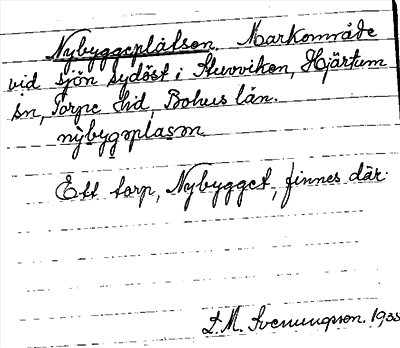 Nybyggeplatsen. Markområde
vid sjön sydöst i Hjärtum
sn, Torpe hd, Bohus län.
nỳbygəplasən
Ett torp, Nybygget, finnes där.
L. M. Svenungsson. 193